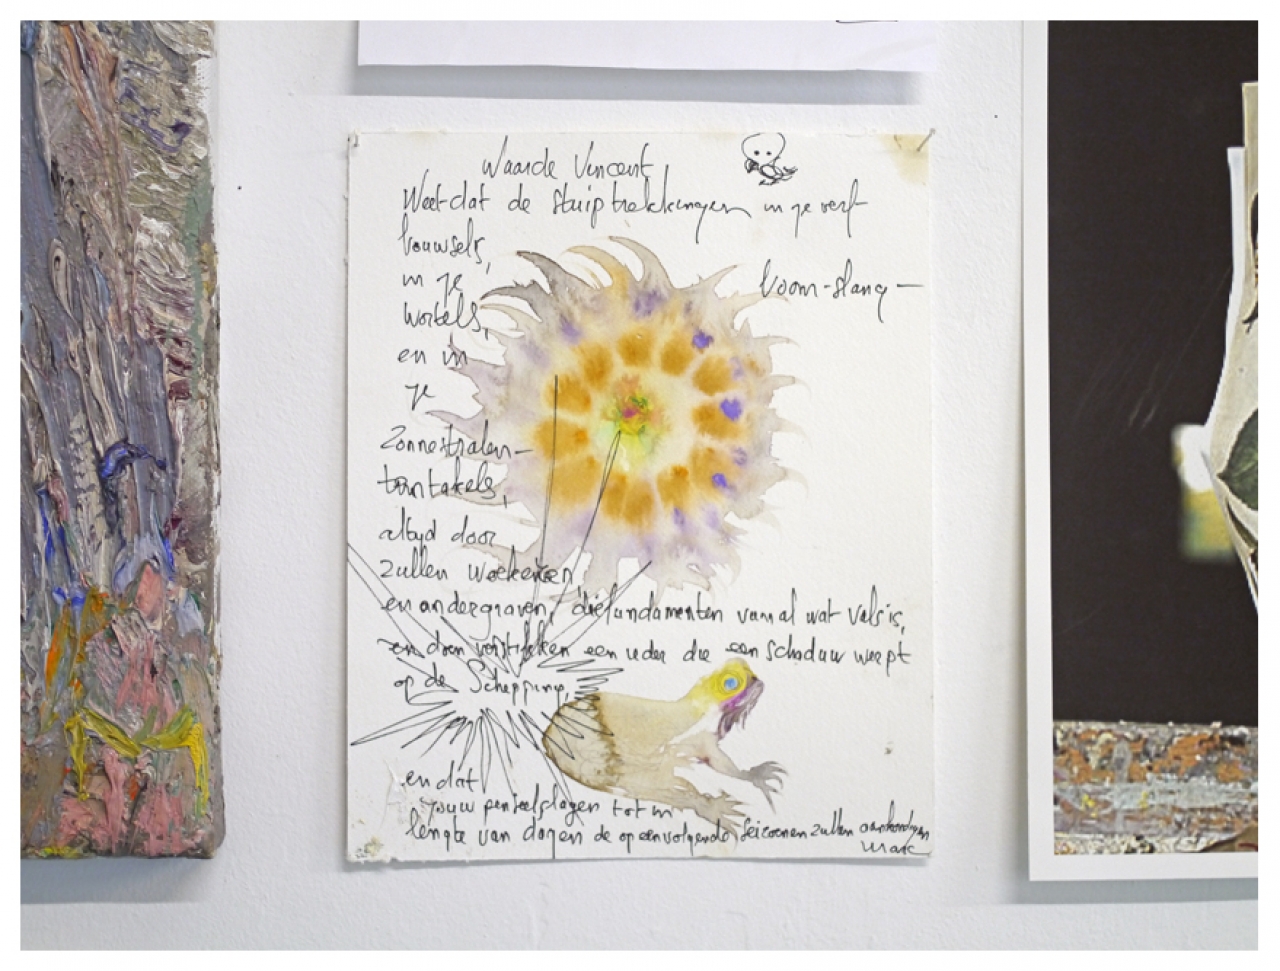 Waarde Vincent,
Weet dat de stuiptrekkingen in je verf
bouwsels,
in je
boom-slang-
wortels,
en in
je
Zonnestralen-
tentakels,
altyd door
zullen woekeren
en ondergraven, de fundamenten van al wat vals is,
en doen verstikken een ieder die een schaduw werpt
op de Schepping,
en dat
jouw penseelslagen tot in
lengte van dagen de opeenvolgende seizoenen zullen aankondigen
Marc